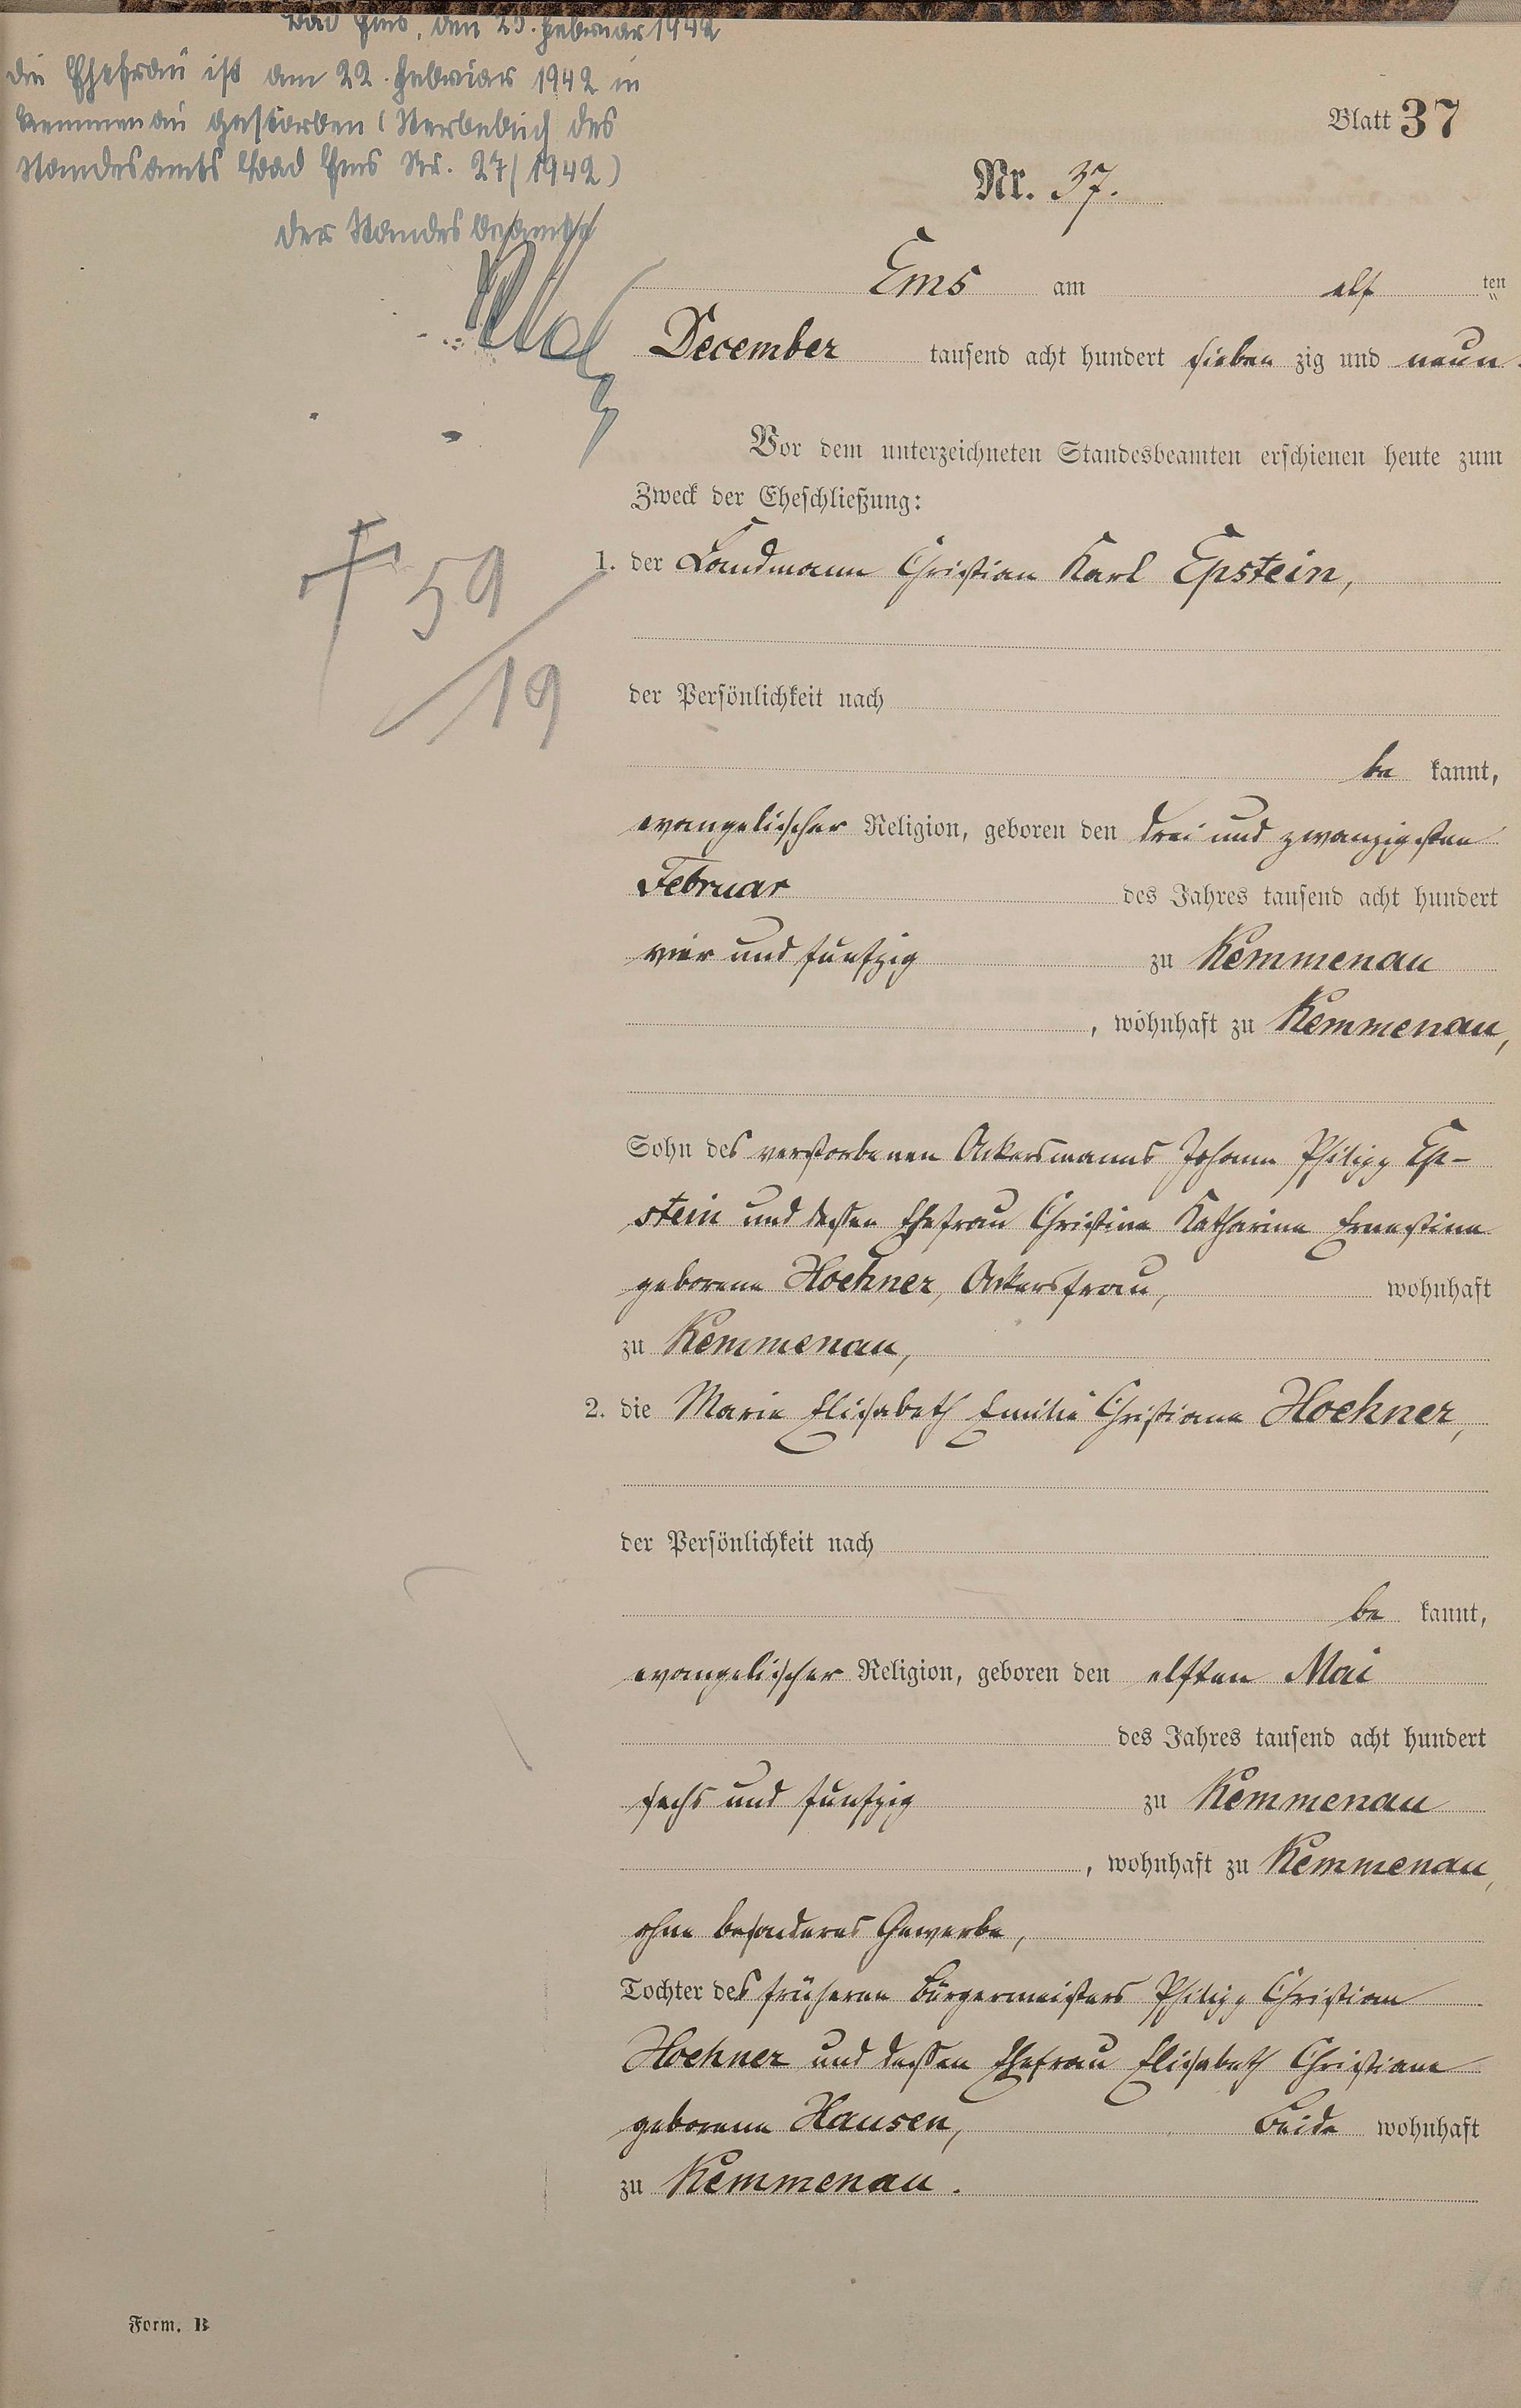 Bad Ems, den 25. Februar 1942
die Ehefrau ist am 22. Februar 1942 in
Kemmenau gestorben (Sterbebuch des
Standesamts Bad Ems Nr. 27/1942)
Der Standesbeamte
Blatt 37
Nr. 37.
Ems am elf ten
December tausend acht hundert sieben zig und neun.
Vor dem unterzeichneten Standesbeamten erschienen heute zum
Zweck der Eheschließung:
1. der Landmann Christian Karl Epstein,
† 59/19
der Persönlichkeit nach
be kannt,
evangelischer Religion, geboren den drei und zwanzigsten
Februar des Jahres tausend acht hundert
vier und fünfzig zu Kemmenau
, wohnhaft zu Kemmenau,
Sohn des verstorbenen Ackersmanns Johann Philipp Ep-
stein und dessen Ehefrau Christine Katharine Ernestine
geborene Hoehner, Ackersfrau, wohnhaft
zu Kemmenau,
2. die Marie Elisabeth Emilie Christiane Hoehner,
der Persönlichkeit nach
be kannt,
evangelischer Religion, geboren den elften Mai
des Jahres tausend acht hundert
sechs und fünfzig zu Kemmenau
, wohnhaft zu Kemmenau,
ohne besonderes Gewerbe,
Tochter des früheren Bürgermeisters Philipp Christian
Hoehner und dessen Ehefrau Elisabeth Christiane
geborene Hausen, Beide wohnhaft
zu Kemmenau.
Form. B